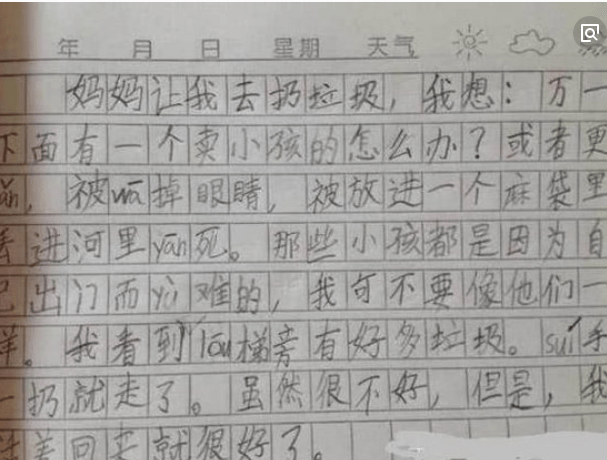 年 月 日 星期 天气
妈妈让我去扔垃圾，我想：万一
下面有一个卖小孩的怎么办？或者更
ǎn，被wā掉眼睛，被放进一个麻袋里
丢进河里yān死。那些小孩都是因为自
己出门而yù难的，我可不要像他们一
样。我看到lóu梯旁有好多垃圾。suí手
一扔就走了。虽然很不好，但是，我
活着回来就很好了。